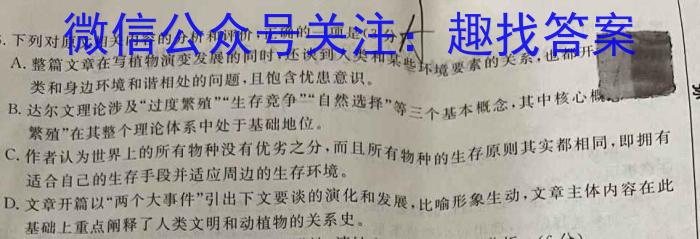 微信公众号关注：趣找答案
下列对原文相关内容的分析和评价，正确的一项是(3分)
A. 整篇文章在写植物演变发展的同时，还谈到人类和某些环境要素的关系，也都开
类和身边环境和谐相处的问题，且饱含忧患意识。
B. 达尔文理论涉及“过度繁殖”“生存竞争”“自然选择”等三个基本概念，其中核心概
繁殖”在其整个理论体系中处于基础地位。
C. 作者认为世界上的所有物种没有优劣之分，而且所有物种的生存原则其实都相同，即拥有
适合自己的生存手段并适应周边的生存环境。
D. 文章开篇以“两个大事件”引出下文要谈的演化和发展，比喻形象生动，文章主体内容在此
基础上重点阐释了人类文明和动植物的关系史。